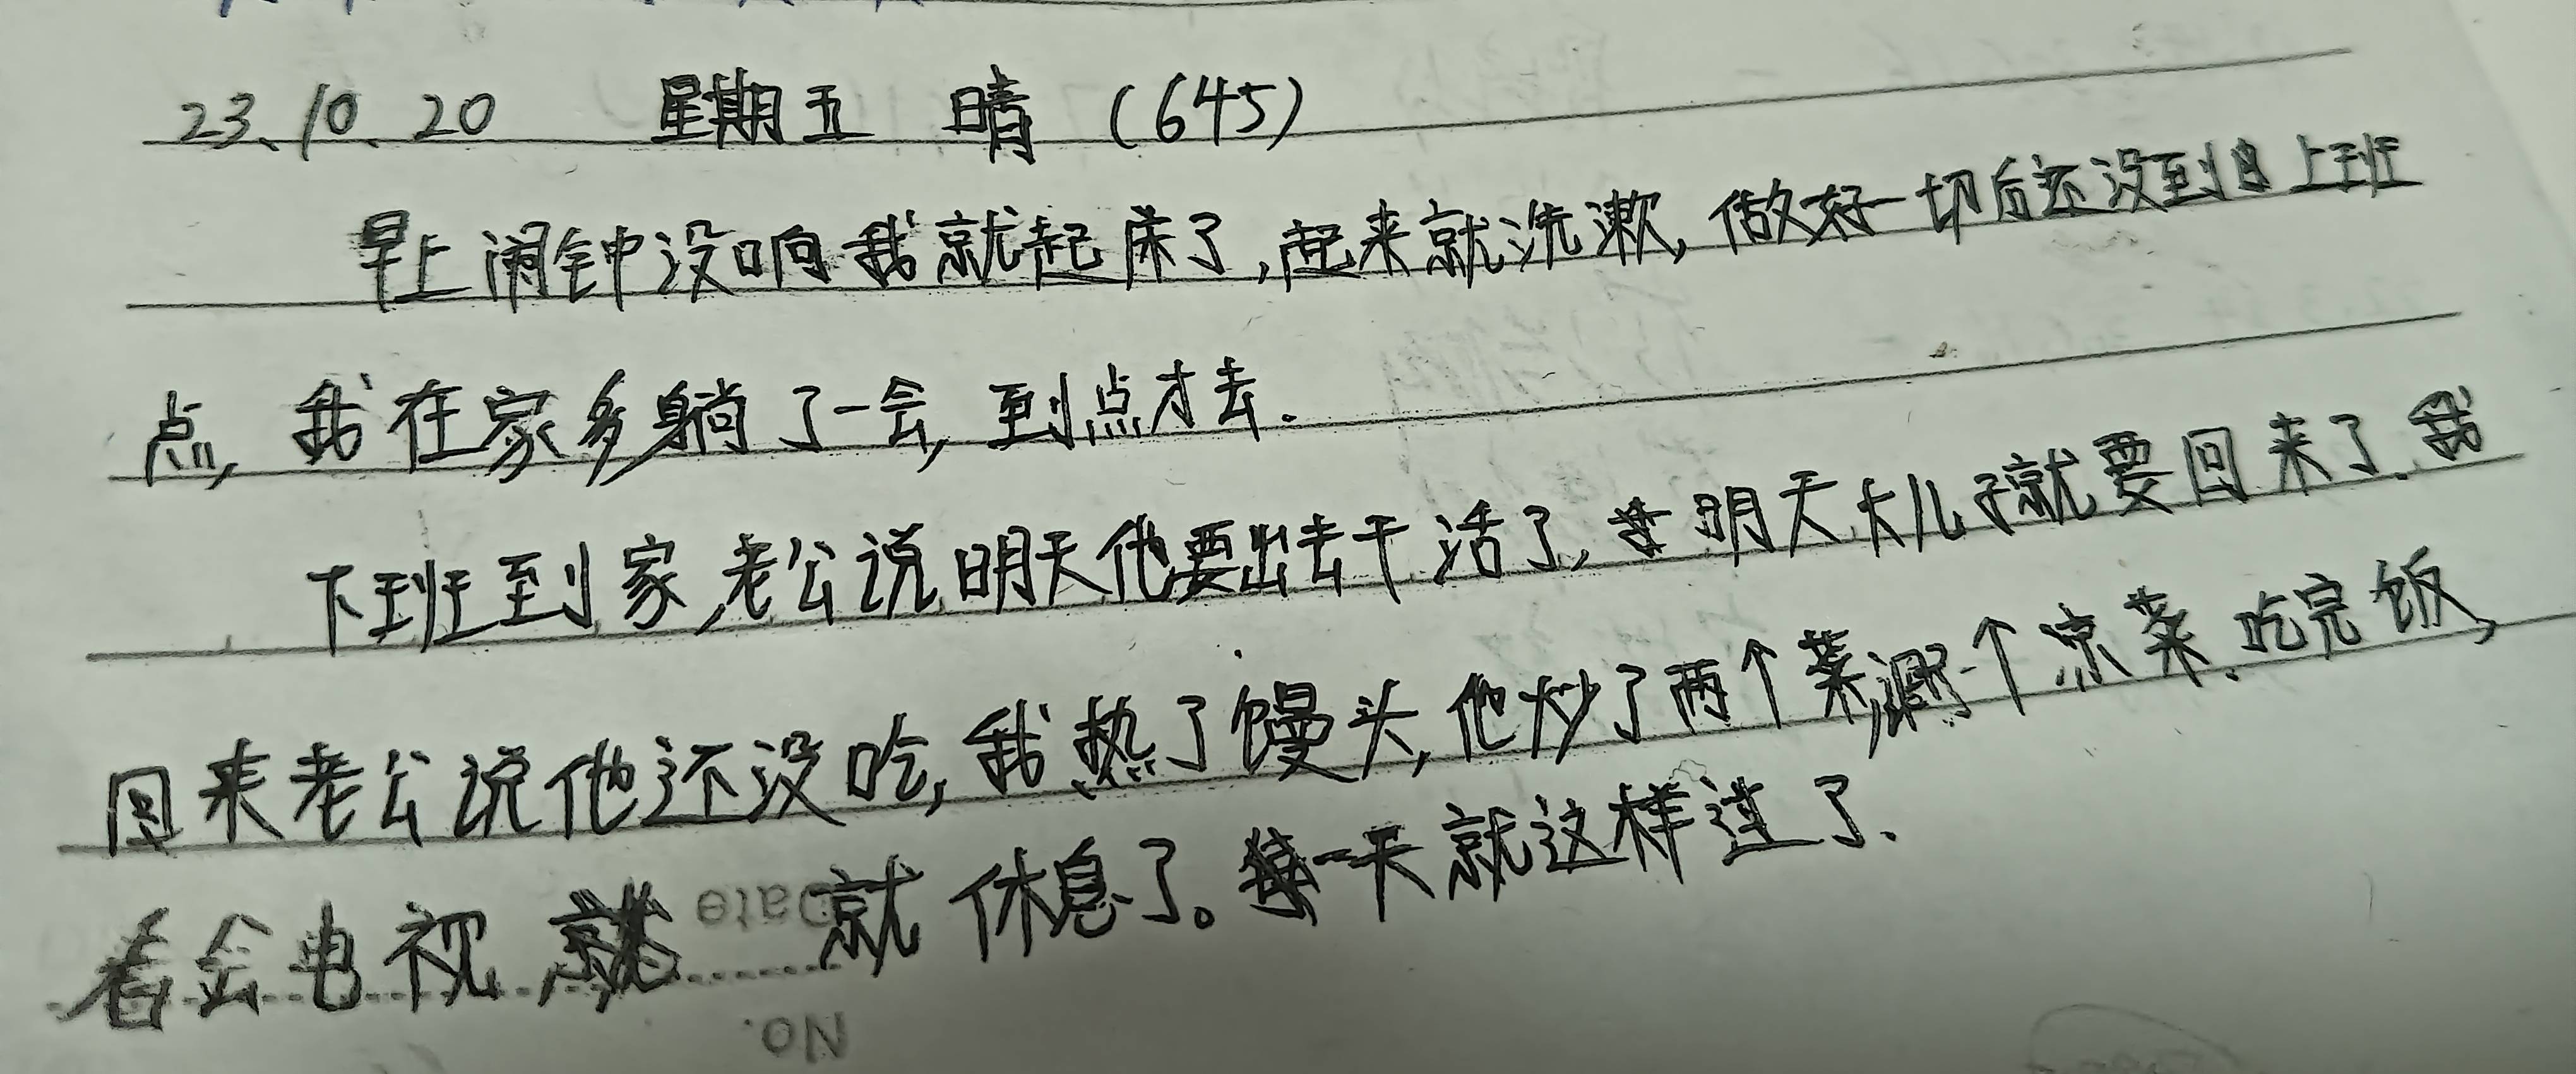 23.10.20 星期五 晴 (645)
早上闹钟没响我就起床了,起来就洗漱,做好一切后还没到上班
点,我在家多躺了一会,到点才去.
下班到家,老公说明天他要出去干活了,明天大儿子就要回来了.我
回来老公说他还没吃,我热了馒头,他炒了两个菜,调一个凉菜.吃完饭,
看会电视就休息了。一天就这样过了.
No.
Date